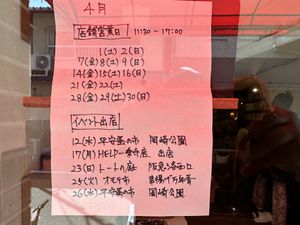 4月
店舗営業日 11:30-17:00
1(土) 2(日)
7(金) 8(土) 9(日)
14(金) 15(土) 16(日)
21(金) 22(土)
28(金) 29(土) 30(日)
イベント出店
12(水) 平安蚤の市 岡崎公園
17(月) HELP 出店
23(日)
25(火)
26(水) 平安蚤の市 岡崎公園